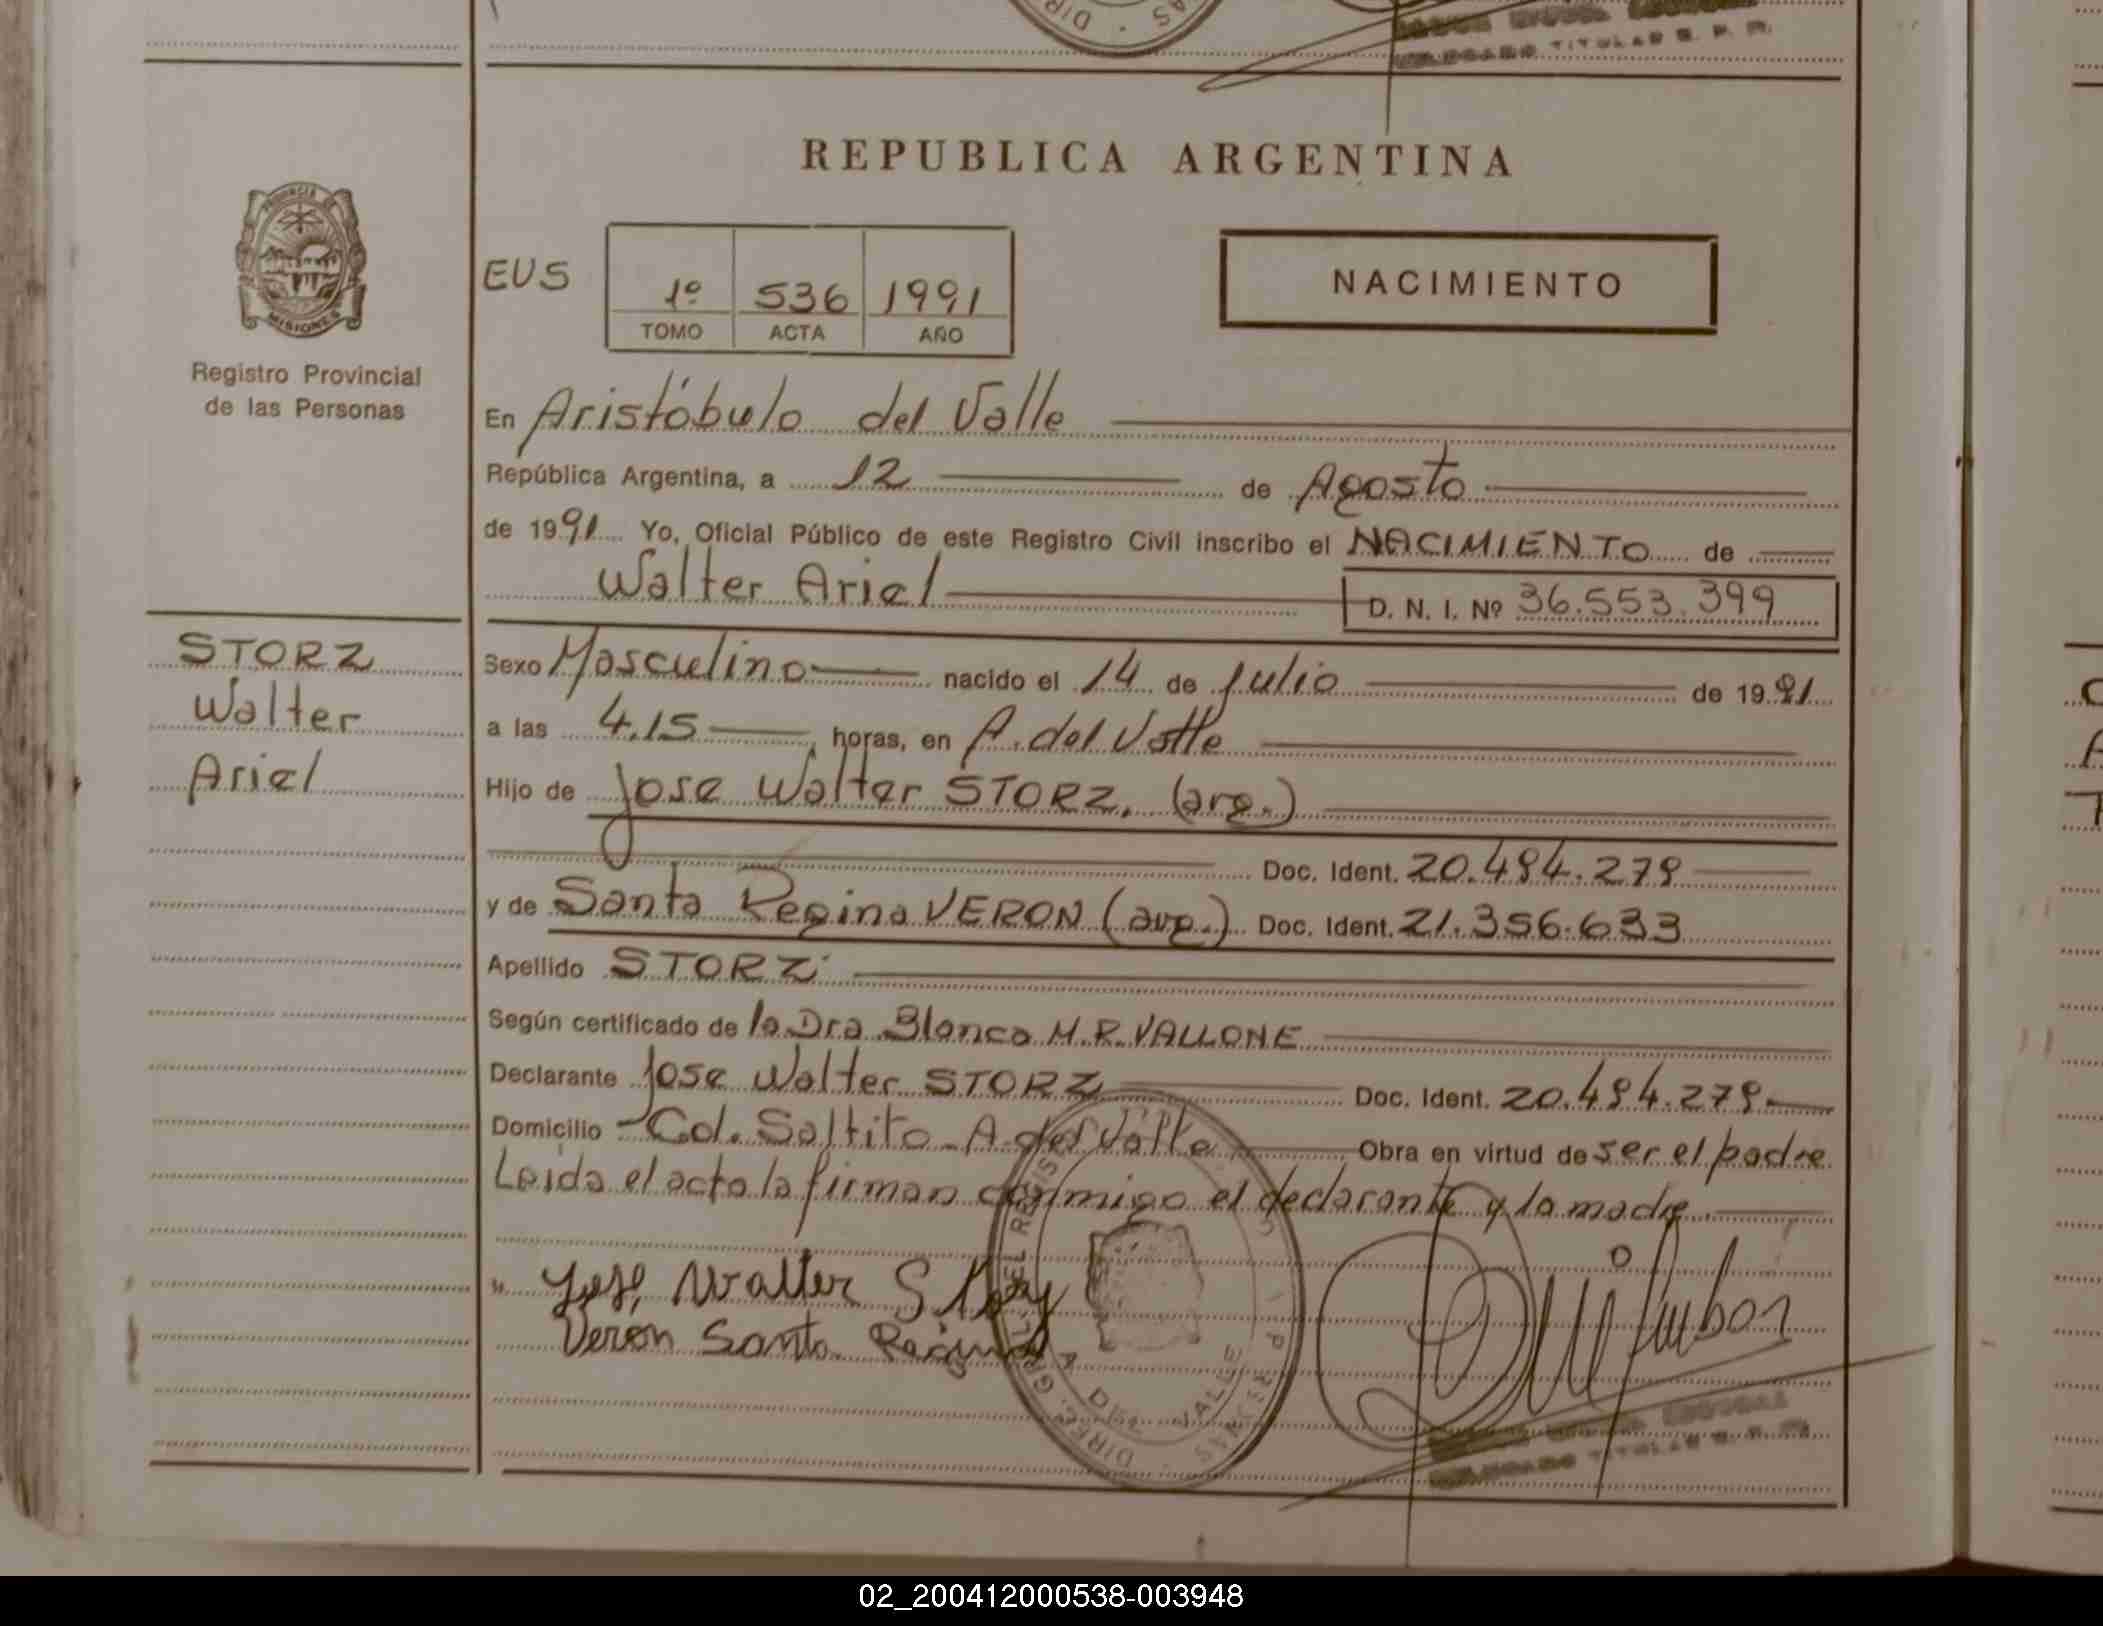 REPUBLICA ARGENTINA
PROVINCIA DE
MISIONES
Registro Provincial
de las Personas
EUS
1º 536 1991
TOMO ACTA AÑO
NACIMIENTO
En Aristóbulo del Valle
República Argentina, a 12 de Agosto
de 1991 Yo, Oficial Público de este Registro Civil inscribo el NACIMIENTO de
Walter Ariel
D. N. I. Nº 36.553.399
STORZ
Walter
Ariel
Sexo Masculino nacido el 14 de Julio de 1991
a las 4.15 horas, en A. del Valle
Hijo de Jose Walter STORZ. (arg.)
Doc. Ident. 20.494.279
y de Santa Regina VERON (arg.) Doc. Ident. 21.356.633
Apellido STORZ
Según certificado de la Dra Blanca M.R. VALLONE
Declarante Jose Walter STORZ Doc. Ident. 20.494.279
Domicilio Col. Saltito - A. del Valle Obra en virtud de ser el padre
Leida el acta la firman conmigo el declarante y la madre.
Jose Walter Storz
Veron Santa Regina
A. DEL VALLE
TITULAR R. P. P.
02_200412000538-003948